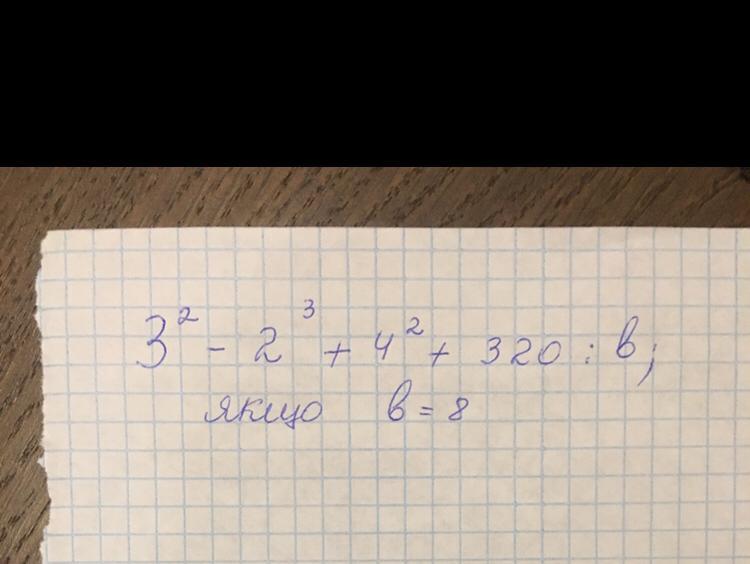 3² - 2³ + 4² + 320 : в;
якщо в = 8